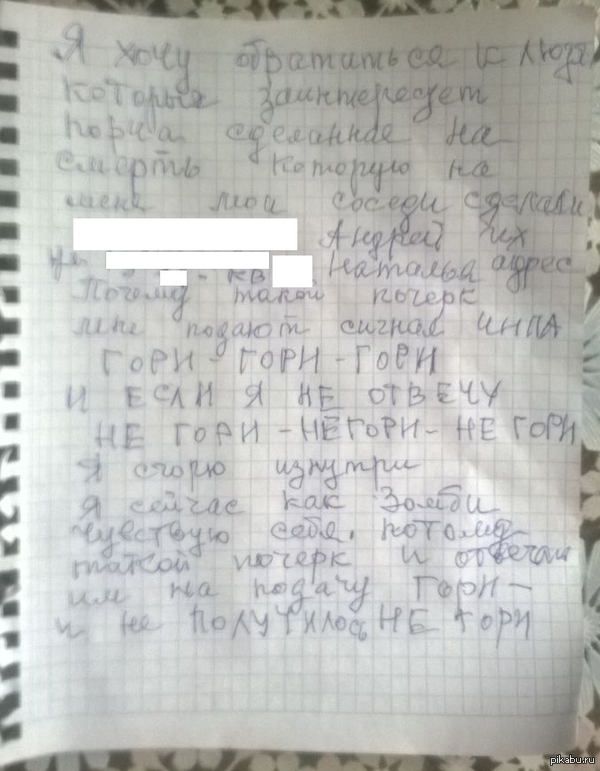 Я хочу обратиться к людя
которых заинтересует
порча сделанная на
смерть которую на
меня мои соседи сделали
Андрей их
ул кв Наталья адрес
Почему такой почерк
мне подают сигнал
ГОРИ - ГОРИ - ГОРИ
И ЕСЛИ Я НЕ ОТВЕЧУ
НЕ ГОРИ - НЕ ГОРИ - НЕ ГОРИ
Я сгорю изнутри
Я сейчас как Зомби
чувствую себя, потому
такой почерк и отвечаю
им на подачу ГОРИ -
и не ПОЛУЧИЛОСЬ НЕ ГОРИ
pikabu.ru